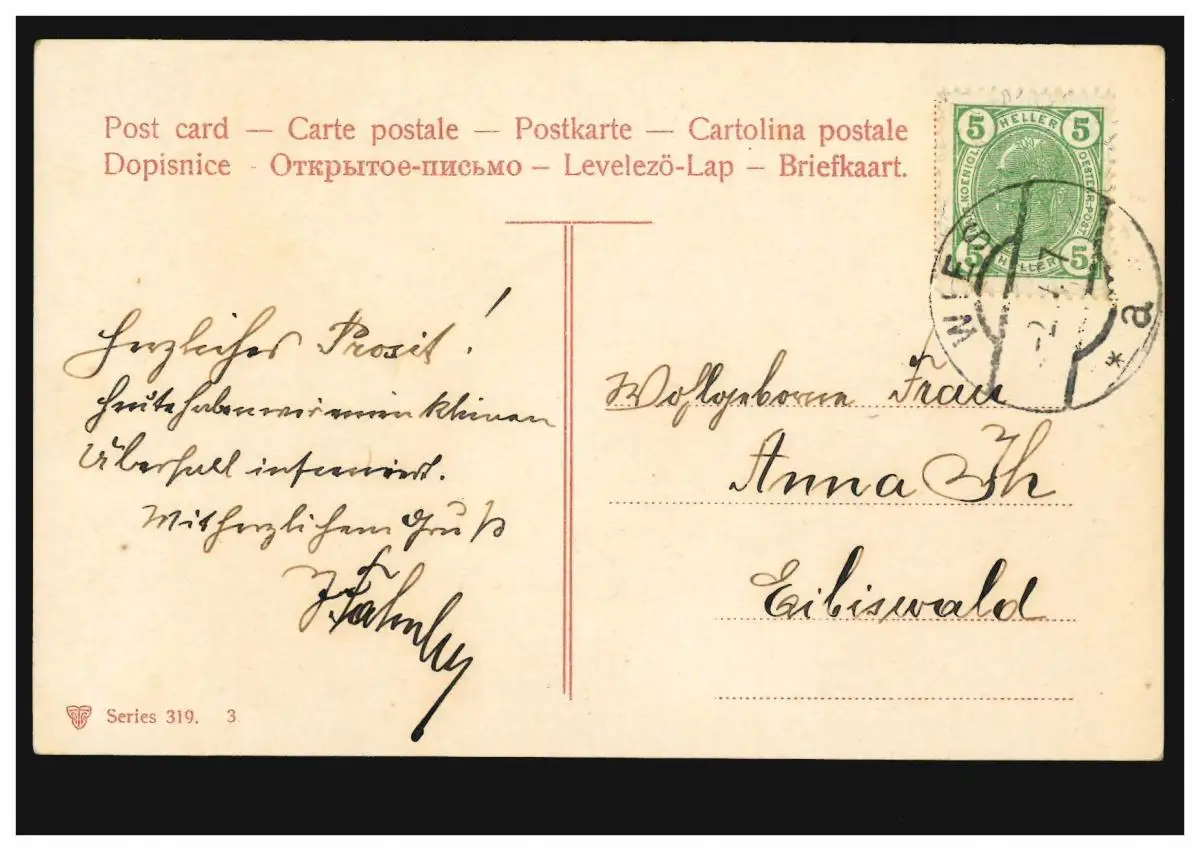 Post card — Carte postale — Postkarte — Cartolina postale
Dopisnice - Открытое-письмо — Levelezö-Lap — Briefkaart.
5 HELLER 5
KOENIGL.
OESTERR. POST.
5 HELLER 5
WIES
a
*
Herzliches Prosit!
Heute haben wir einen kleinen
Überfall inszeniert.
Mit herzlichem Gruß
Wohlgeborne Frau
Anna Ih
Eibiswald
Series 319. 3